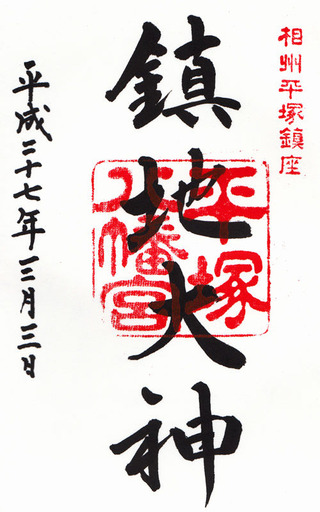 相州平塚鎮座
鎮地大神
平塚
八幡宮
平成二十七年三月三日